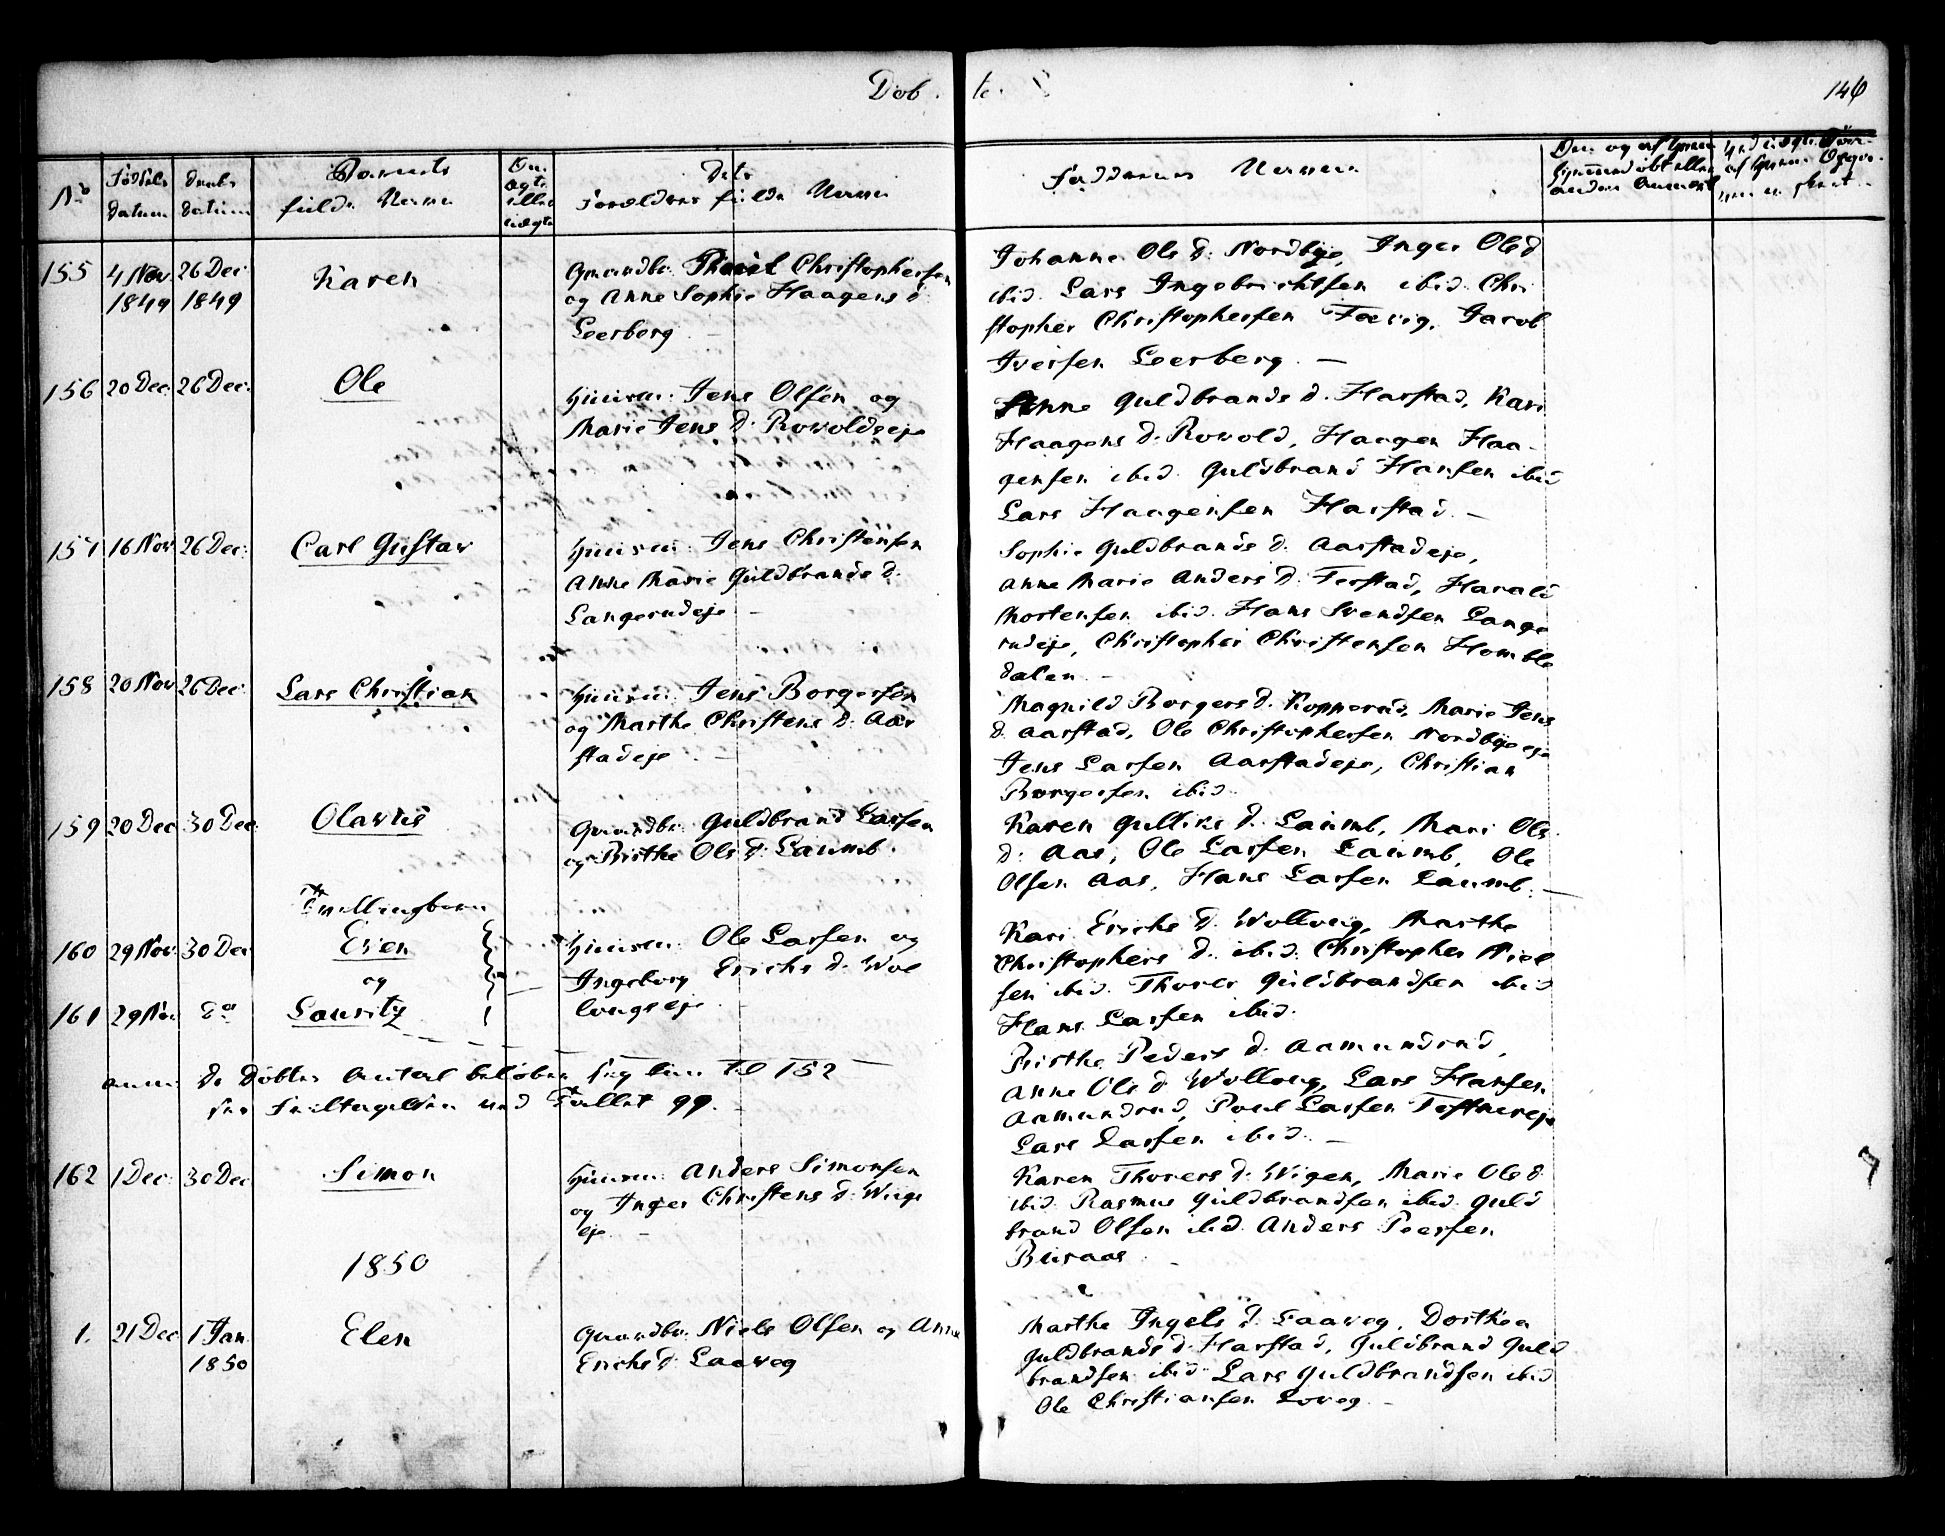 Døb
te.
146
No
Fødsels datum
Daabs datum
Barnets fulde Navn
Om ægte eller uægte
Dets Forældres fulde Navne
Faddernes Navne
155 4 Nov 1849 26 Dec 1849 Karen
Gaardbr. Christophersen
og Anne Sophie Haagens d.
Leerberg
Johanne Ols d. Nordbye, Inger Ols d
ibid. Lars Ingebrichtsen ibid. Chri
stopher Christophersen Fævig, Jacob
Iversen Leerberg. —
156 20 Dec. 26 Dec. Ole
Huusm. Jens Olsen og
Marie Jens d. Rovoldseje
Anne Guldbrands d. Harstad, Kari
Haagens d. Rovold, Haagen Haa-
gensen ibid. Guldbrand Hansen ibid
Lars Haagensen Harstad. —
157 16 Nov 26 Dec. Carl Gustav
Huusm. Jens Christensen
Anne Marie Guldbrands d.
Langerudeje —
Sophie Guldbrands d. Aarstadeje,
Anne Marie Anders d. Forstad, Harald
Mortensen ibid. Hans Svendsen Lange
rudeje, Christopher Christensen Homble
dalen. —
158 20 Nov 26 Dec. Lars Christian
Huusm. Jens Borgersen
og Marthe Christens d. Aar
stadeje. —
Magnild Borgers d. Kopperud, Marie Jens
d. Aarstad, Ole Christophersen Nordbyeeje
Jens Larsen Aarstadeje, Christian
Borgersen ibid.
159 20 Dec 30 Dec. Olavus
Gaardbr. Guldbrand Larsen
og Birthe Ols d. Laumb.
Karen Gulliks d. Laumb, Mari Ols
d. Aas, Ole Larsen Laumb, Ole
Olsen Aas, Hans Larsen Laumb. —
Tvillingbørn
160 29 Nov. 30 Dec Even
og
161 29 Nov do Lauritz
Huusm. Ole Larsen og
Ingeborg Erichs d. Wol
lougseje.
Kari Erichs d. Wolloug, Marthe
Christophers d. ibid. Christopher Niel
sen ibid. Thorer Guldbrandsen ibid
Hans Larsen ibid.
Birthe Peders d. Aamundrud,
Anne Ols d. Wolloug, Lars Hansen
Aamundrud, Poul Larsen Toftnereje
Lars Larsen ibid. —
anm: De Døbtes Antal beløber sig kun til 152 —
ved Tallet 99. —
162 1 Dec. 30 Dec Simon
Huusm. Anders Simonsen
og Inger Christens d. Wiigs
eje. —
Karen Thorers d. Wigen, Marie Ols d.
ibid. Rasmus Guldbrandsen ibid. Guld
brand Olsen ibid. Anders Peersen
Buraas.
1850
1. 21 Dec 1 Jan. 1850 Elen
Gaardbr. Niels Olsen og Anne
Erichs d. Laaveg
Marthe Ingels d. Laaveg, Dorthea
Guldbrands d. Harstad, Guldbrand Guld
brandsen ibid. Lars Guldbrandsen ibid
Ole Christiansen Loveg. —